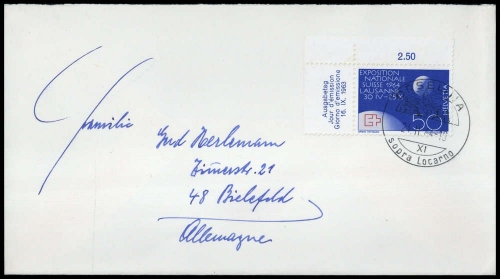 2.50
Ausgabetag
Jour d'émission
Giorno d'emissione
16. IX. 1963
EXPOSITION
NATIONALE
SUISSE 1964
LAUSANNE
30.IV-25.X.
HELVETIA
50
XI
sopra Locarno
Familie
Gerd Herlemann
48 Bielefeld
Allemagne